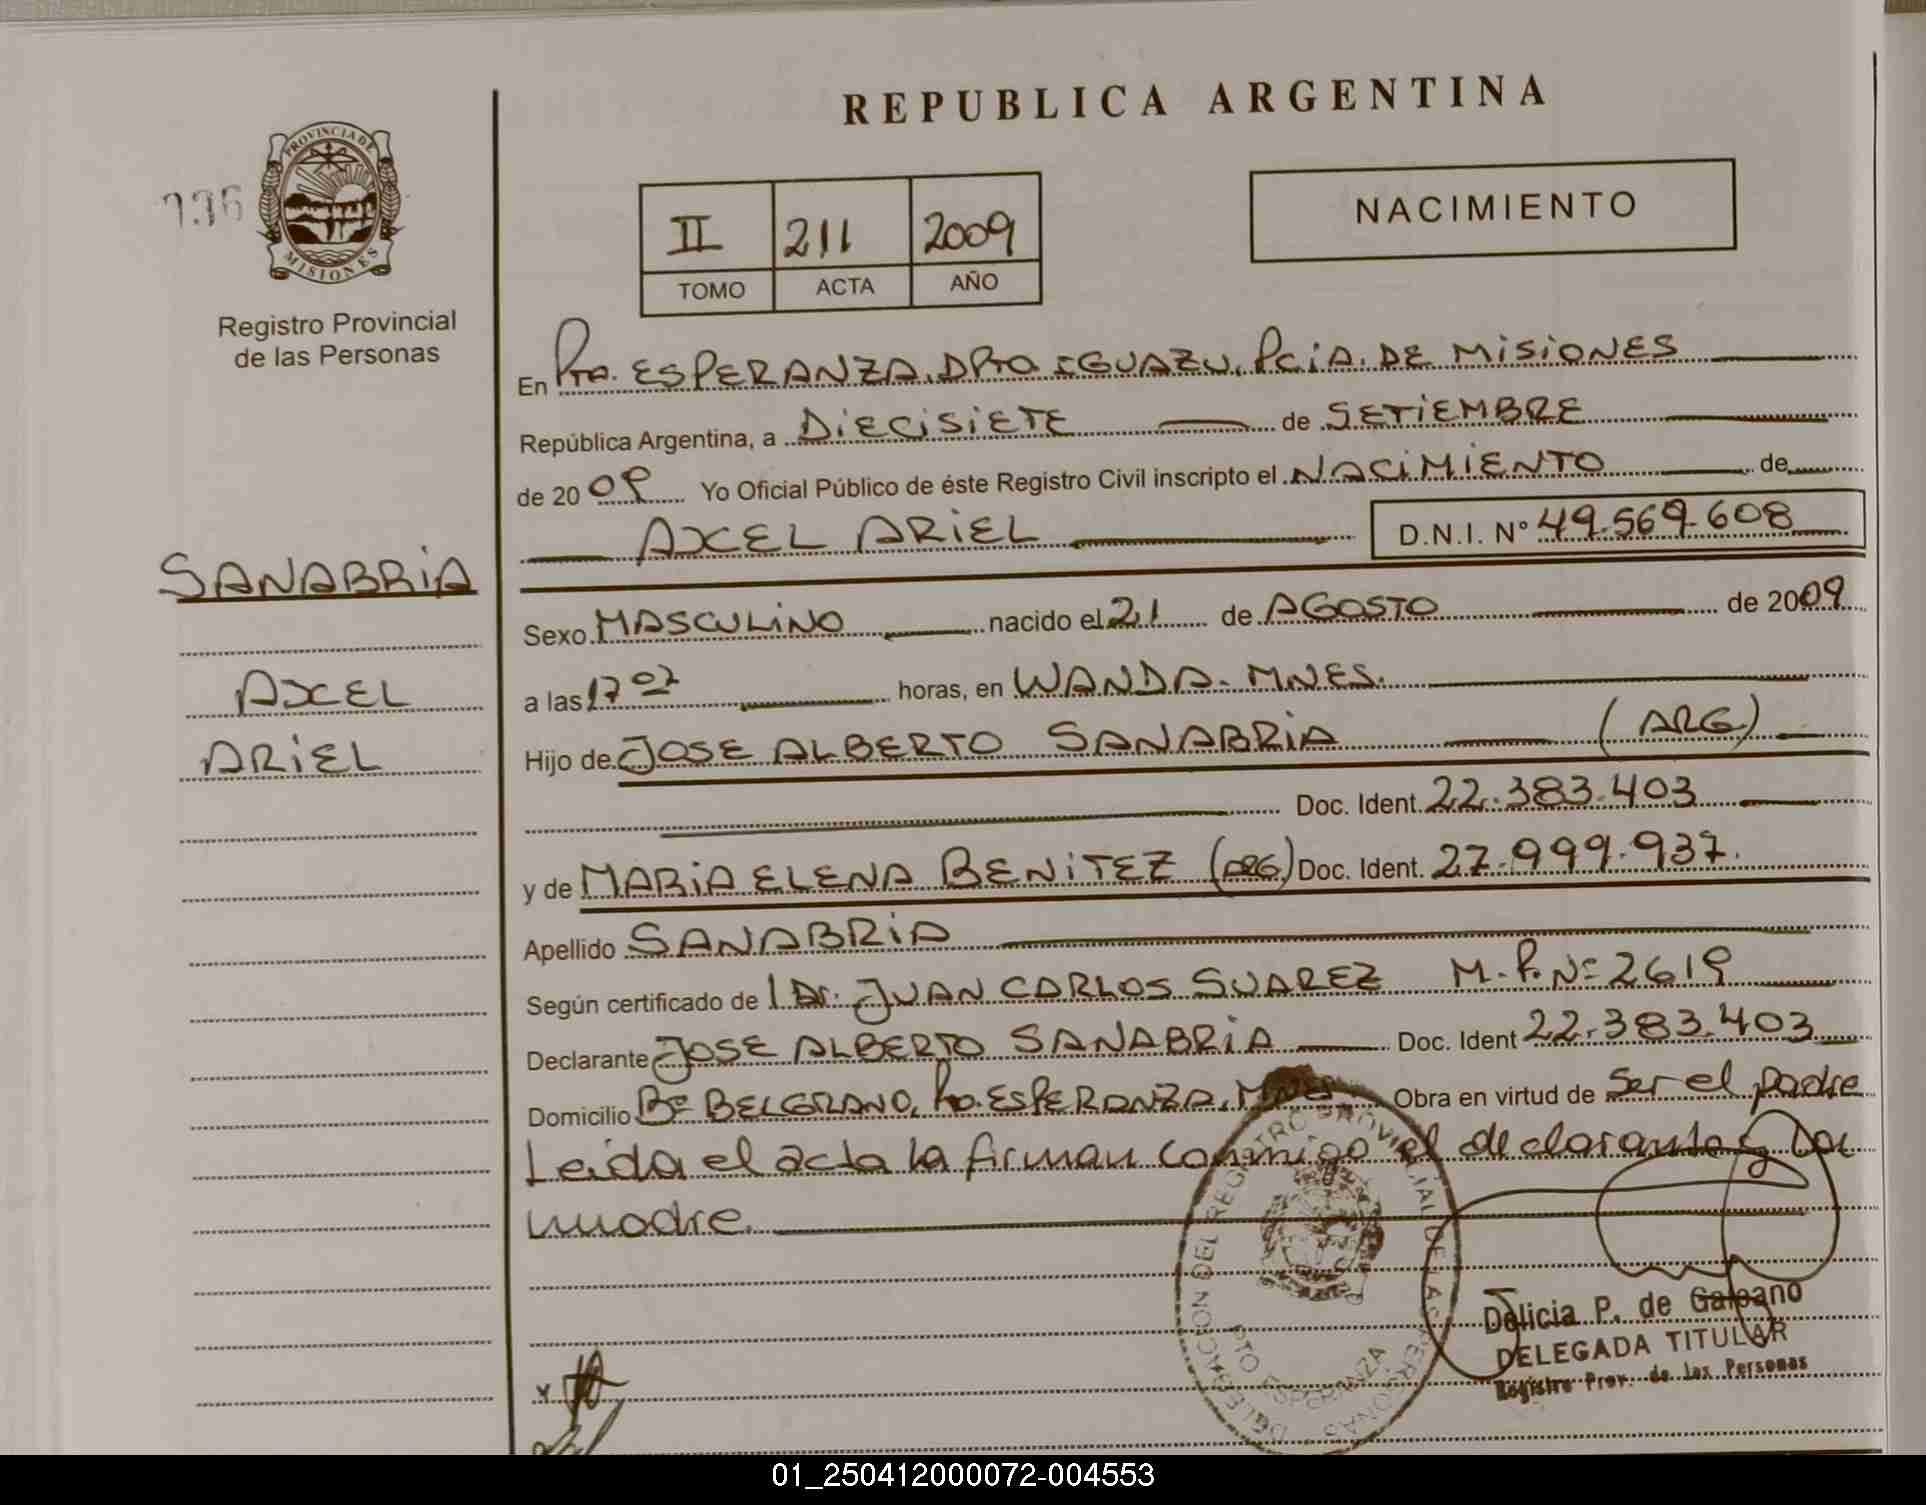 REPUBLICA ARGENTINA
PROVINCIA DE
MISIONES
Registro Provincial
de las Personas
II 211 2009
TOMO ACTA AÑO
NACIMIENTO
En Pto. ESPERANZA, DPTO IGUAZU, PCIA. DE MISIONES
República Argentina, a DIECISIETE de SETIEMBRE
de 2009 Yo Oficial Público de éste Registro Civil inscripto el NACIMIENTO de
AXEL ARIEL D.N.I. N° 49.569.608
SANABRIA
AXEL
ARIEL
Sexo MASCULINO nacido el 21 de AGOSTO de 2009
a las 17 07 horas, en WANDA - MNES.
Hijo de JOSE ALBERTO SANABRIA (ARG)
Doc. Ident. 22.383.403
y de MARIA ELENA BENITEZ (ARG) Doc. Ident. 27.999.937.
Apellido SANABRIA
Según certificado de l Dr. JUAN CARLOS SUAREZ M.P. Nº 2619
Declarante JOSE ALBERTO SANABRIA Doc. Ident 22.383.403
Domicilio Bº BELGRANO, Pto. ESPERANZA, MNES Obra en virtud de ser el padre
Leida el acta la firman conmigo el declarante y la
madre.
DELEGACION DEL REGISTRO PROVINCIAL DE LAS PERSONAS
PTO ESPERANZA
Delicia P. de Galeano
DELEGADA TITULAR
Registro Prov. de las Personas
01_250412000072-004553